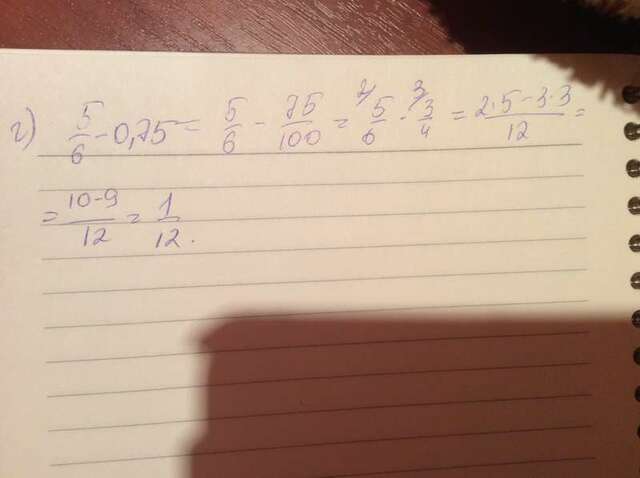 г) 5/6 - 0,75 = 5/6 - 75/100 = ²⁄5/6 - ³⁄3/4 = 2·5-3·3/12 =
= 10-9/12 = 1/12.